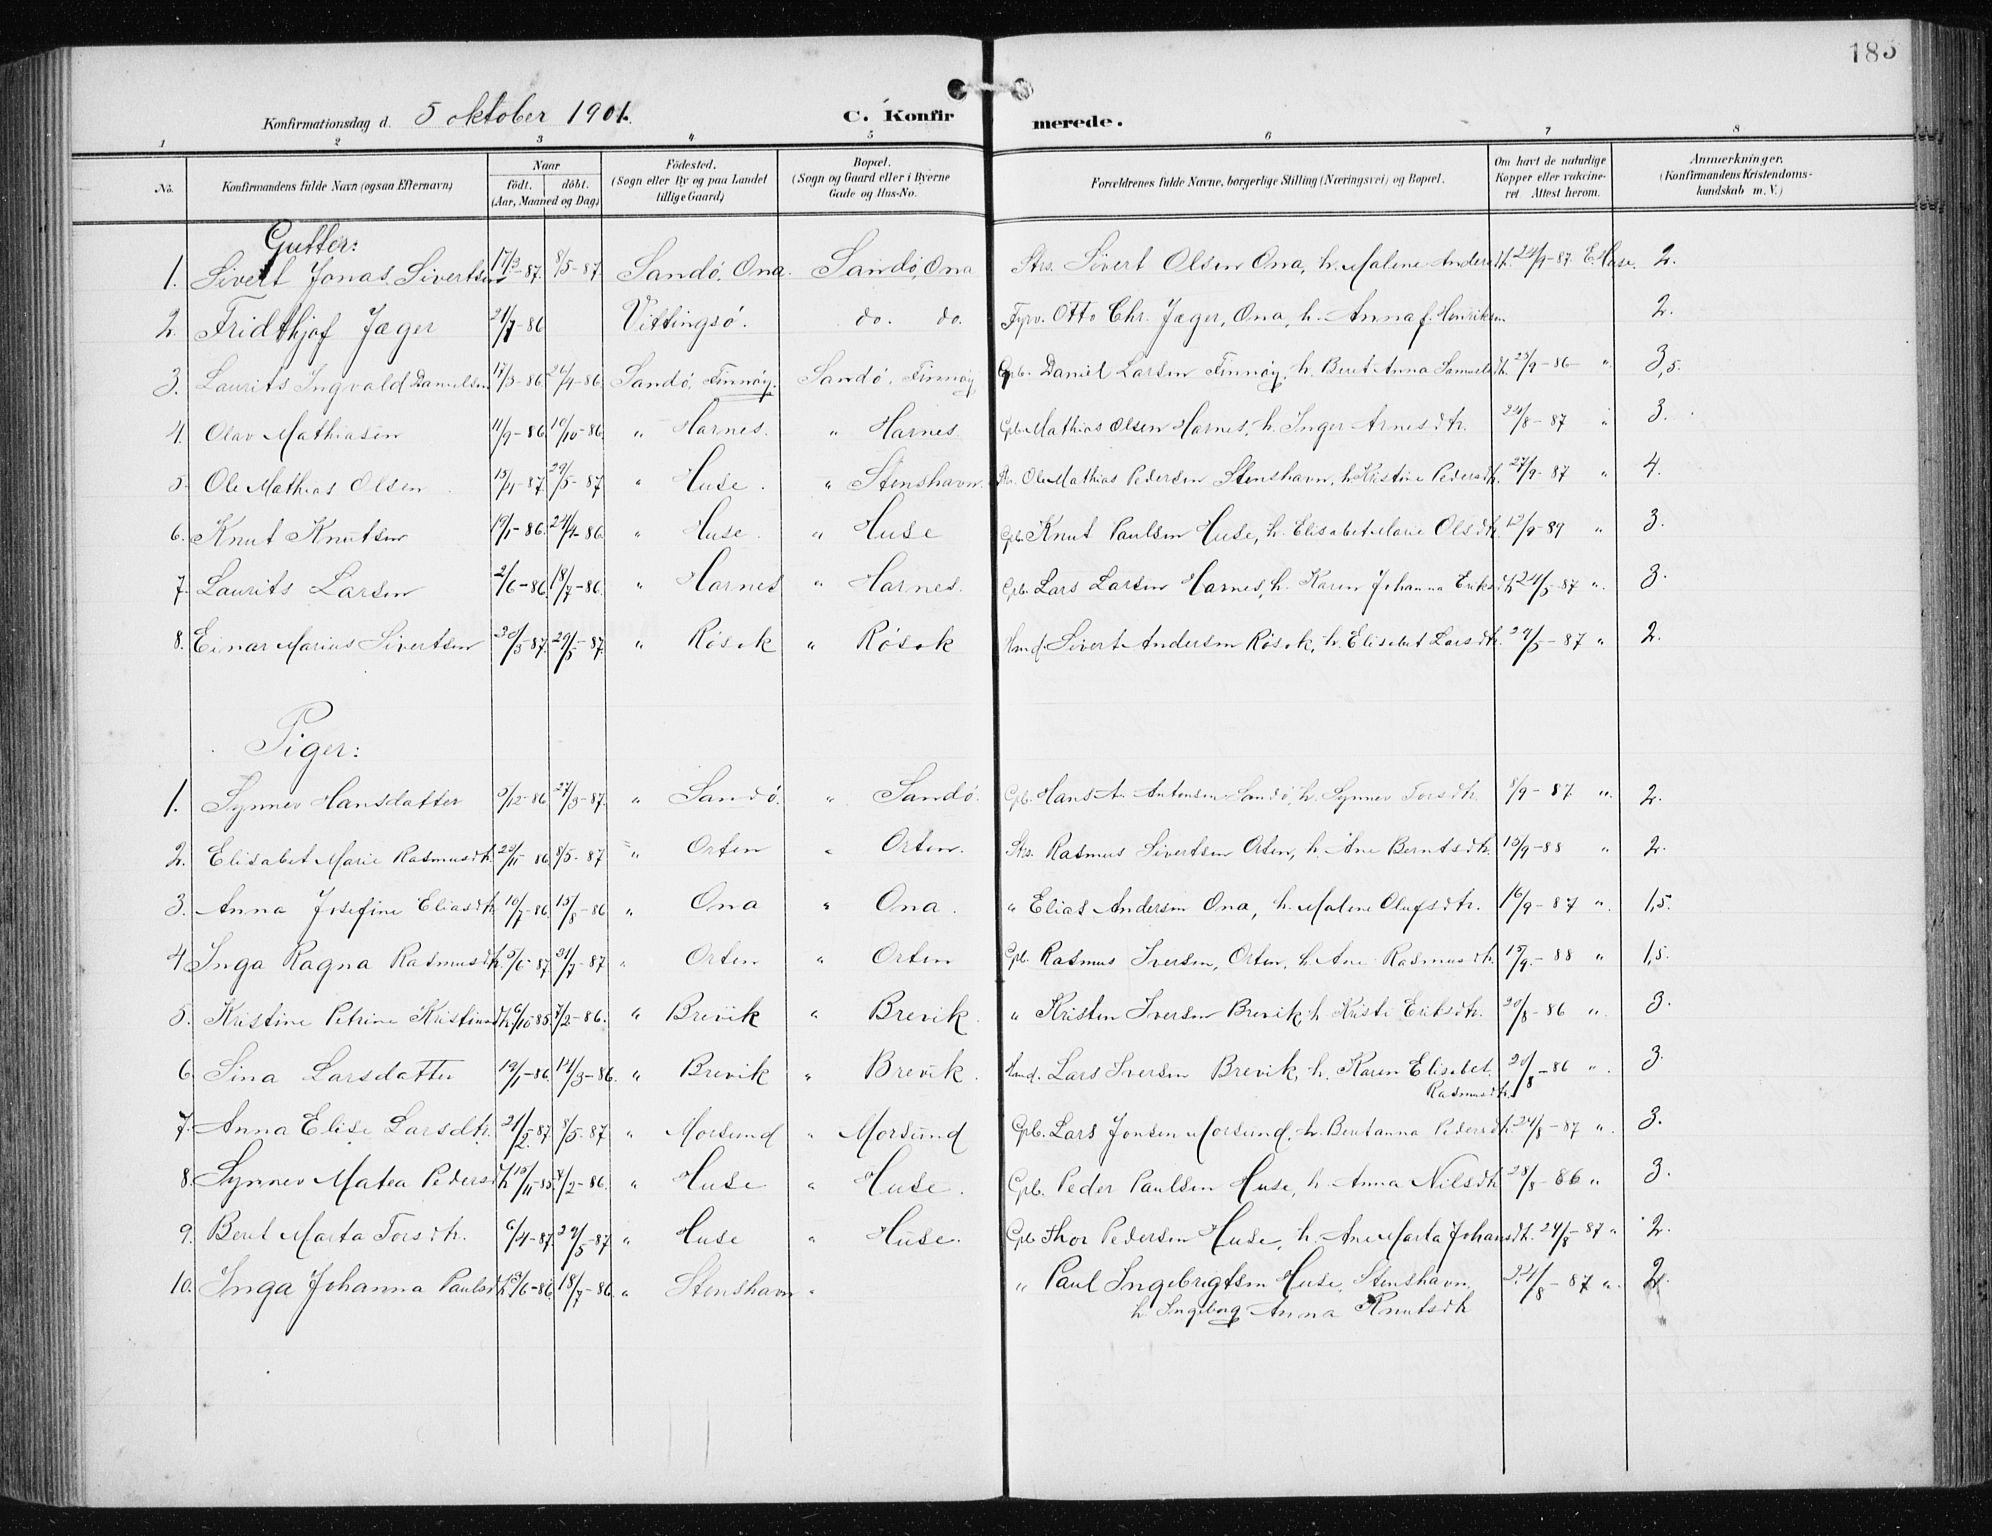 185
Konfirmationsdag d. 5 oktober 1901. C. Konfirmerede.
1 2 3 4 5 6 7 8
No. Konfirmandens fulde Navn (ogsaa Efternavn) Naar født. døbt. (Aar, Maaned og Dag) Fødested. (Sogn eller By og paa Landet tillige Gaard) Bopæl. (Sogn og Gaard eller i Byerne Gade og Hus-No. Forældrenes fulde Navne, borgerlige Stilling (Næringsvei) og Bopæl. Om havt de naturlige Kopper eller vakcineret Attest herom. Anmerkninger. (Konfirmandens Kristendomskundskab m. V.)
Gutter:
1. Sivert Jonas Sivertsen 17/3-87. 8/5-87 Sandö, Ona. Sandö, Ona Strs. Sivert Olsen Ona, h. Malene Andersdt. 24/9-87 E. Huse. 2.
2. Fridthjof Jæger 21/7-86 Vittingsö. do. do. Fyrv. Otto Chr. Jæger, Ona, h. Anna f. Henriksen 2.
3. Laurits Ingvald Danielsen 17/3-86 26/4-86 Sandö, Finnöy. Sandö, Finnöy Gpb. Daniel Larsen Finnöy, h. Beret Anna Samuelsdt. 25/9-86 " 3,5.
4. Olav Mathiasen 11/9-86 10/10-86. " Harnes. " Harnes Gpb. Mathias Olsen Harnes, h. Inger Arnesdtr. 24/8-87 " 3.
5. Ole Mathias Olsen 15/4-87. 29/5-87 " Huse. " Stenshavn. Str. Ole Mathias Pedersen Stenshavn, h. Kristine Pedersdt. 27/9-87 " 4.
6. Knut Knutsen 19/1-86. 24/4-86 " Huse. " Huse Gpb. Knut Paulsen Huse, h. Elisabet Marie Olsdt. 12/9-89 " 3.
7. Laurits Larsen 2/6-86. 18/7-86. " Harnes " Harnes. Gpb. Lars Larsen Harnes, h. Karen Johanna Eriksdt. 24/5-87 " 3.
8. Einar Marius Sivertsen 30/3-87. 29/5-87. " Rösok " Rösok Hmd. Sivert Andersen Rösok, h. Elisabet Larsdtr. 29/5-87 " 2.
Piger:
1. Synnev Hansdatter 5/12-86 27/3-87. " Sandö. " Sandö. Gpb. Hans A. Antonsen Sandö, h. Synnev Torsdtr. 8/9-87. " 2.
2. Elisabet Marie Rasmusdt. 25/11 86 8/5-87 " Orten " Orten. Strs. Rasmus Sivertsen Orten, h. Ane Berntsdtr. 15/9-88 " 2.
3. Anna Josefine Eliasdt. 10/7-86. 15/8-86 " Ona " Ona. " Elias Andersen Ona, h. Malene Olufsdtr. 16/9-87 ". 1,5.
4 Inga Ragna Rasmusdt. 5/6-87 31/7-87 " Orten " Orten Gpb. Rasmus Iversen, Orten, h. Ane Rasmusdt. 15/9-88 " 1,5.
5. Kristine Petrine Kristensdt. 6/10-85. 7/2-86. " Brevik " Brevik. " Kristen Iversen Brevik h. Kristi Eriksdtr. 20/8-86 ". 3.
6. Sina Larsdatter 19/1-86. 14/3-86. " Brevik " Brevik. Hmd. Lars Iversen Brevik, h. Karen Elisabet 20/8-86 ". 3.
Rasmusdt.
7. Anna Elise Larsdtr. 21/2-87 8/5-87 " Morsund " Morsund Gpb. Lars Jonsen Morsund, h. Beritanna Pedersdt. 24/8-87 ". 3.
8. Synnev Matea Pedersdt. 15/11-85 7/2-86. " Huse " Huse. Gpb. Peder Paulsen Huse, h. Anna Nilsdt. 28/8-86 " 3.
9. Beret Marta Torsdtr. 6/4-87. 29/5-87 " Huse " Huse. Gpb Thor Pedersen Huse, h. Ane Marta Johansdt. 24/8-87 " 2.
10. Inga Johanna Paulsdt. /6-86 18/7-86. " Stenshavn " " Paul Ingebrigtsen Huse, Stenshavn. 24/8-87 ". 2.
h. Ingeborg Anna Knutsdt